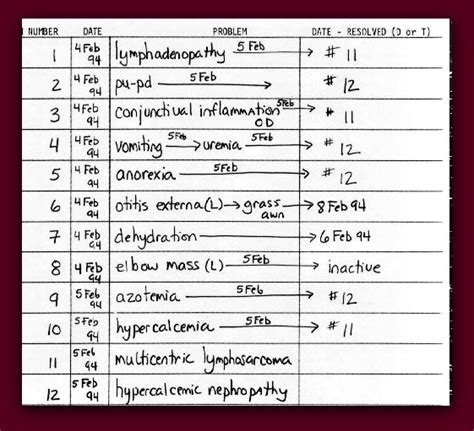 NUMBER DATE PROBLEM DATE - RESOLVED (D or T)
1 4 Feb 94 lymphadenopathy 5 Feb → # 11
2 4 Feb 94 pu-pd 5 Feb → # 12
3 4 Feb 94 conjunctival inflammation OD 5 Feb → # 11
4 4 Feb 94 vomiting 5 Feb → uremia 5 Feb → # 12
5 4 Feb 94 anorexia 5 Feb → # 12
6 4 Feb 94 otitis externa (L) → grass awn → 8 Feb 94
7 4 Feb 94 dehydration → 6 Feb 94
8 4 Feb 94 elbow mass (L) 5 Feb → inactive
9 5 Feb 94 azotemia 5 Feb → # 12
10 5 Feb 94 hypercalcemia 5 Feb → # 11
11 5 Feb 94 multicentric lymphosarcoma
12 5 Feb 94 hypercalcemic nephropathy